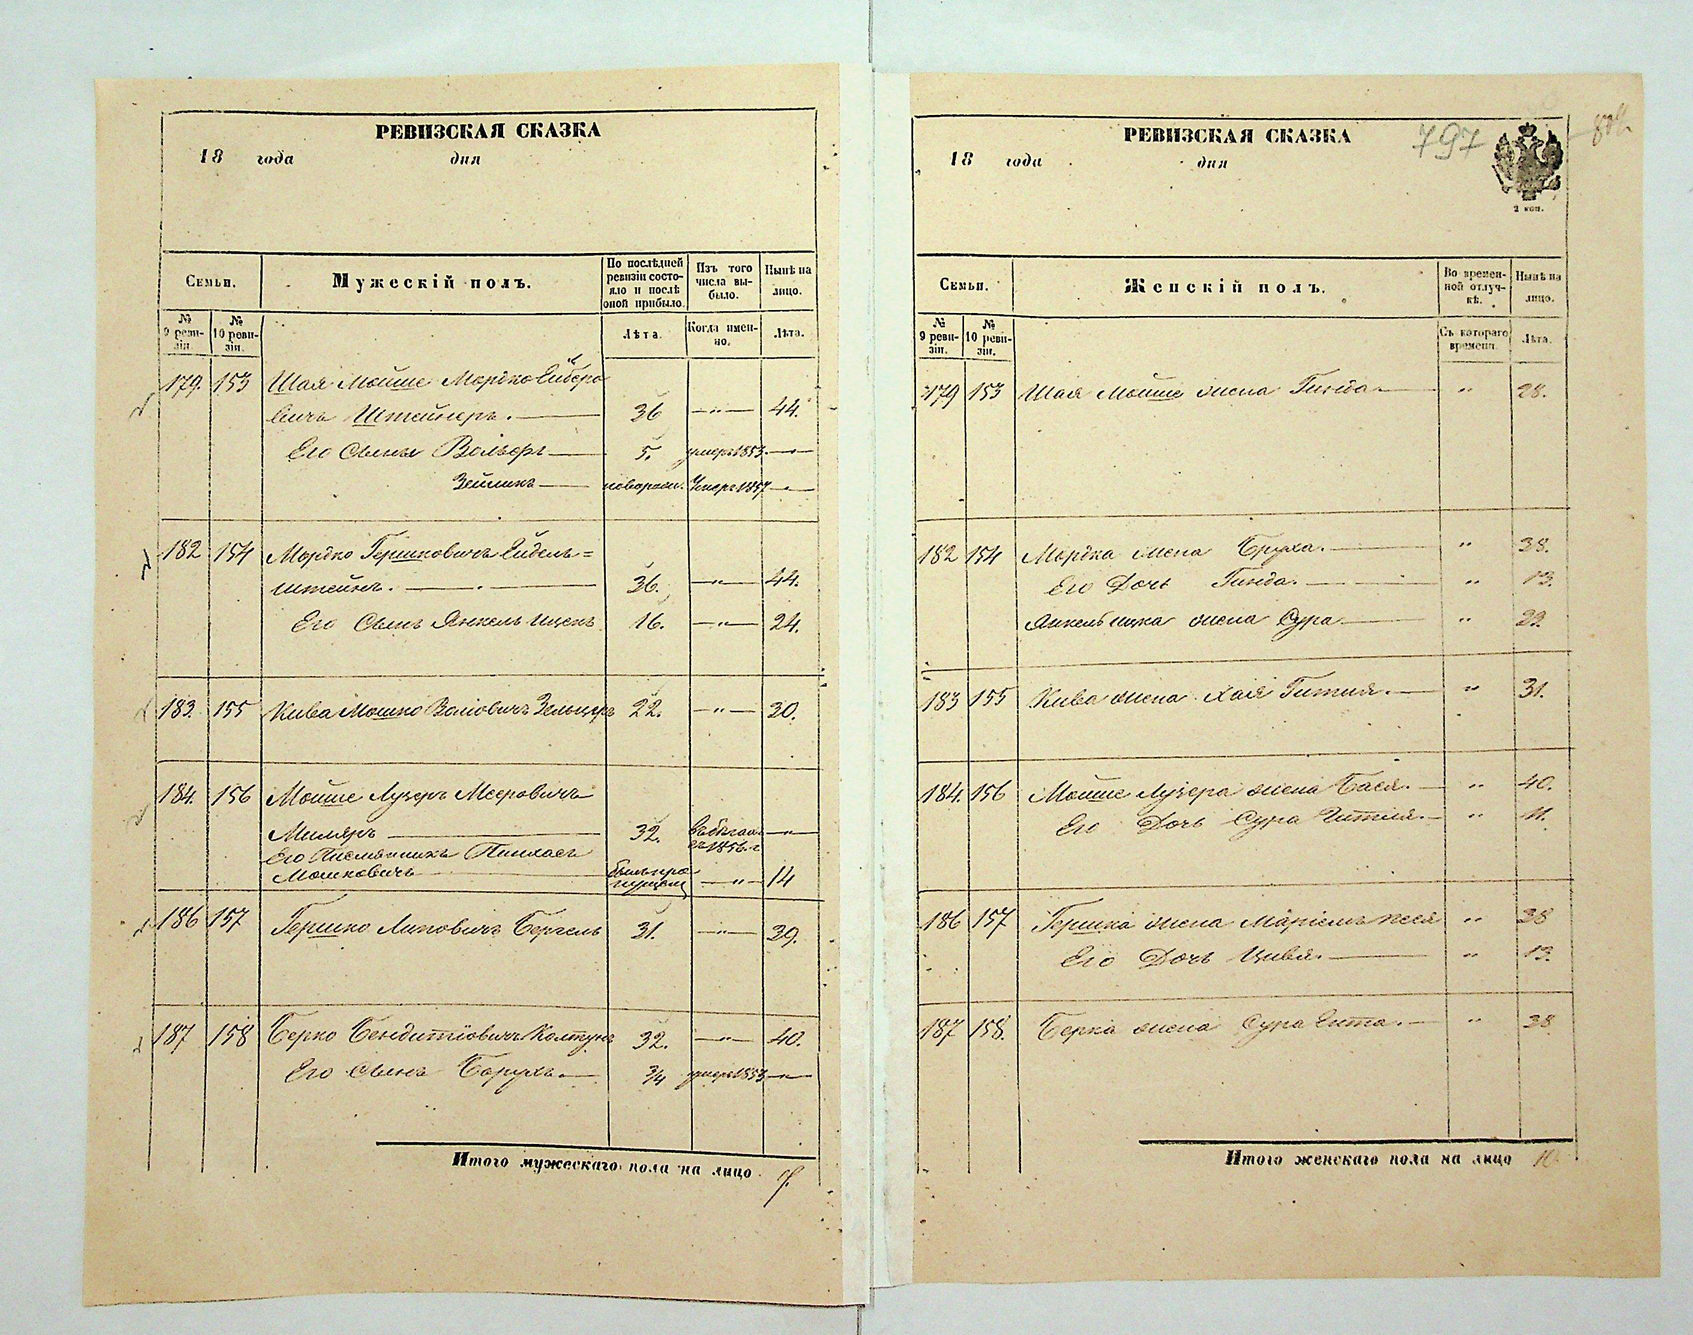 РЕВИЗСКАЯ СКАЗКА
18 года дня
Семьи.
Мужескій полъ.
По послѣдней ревизіи состояло и послѣ оной прибыло.
Изъ того числа выбыло.
Нынѣ на лицо.
№ 9 ревизіи.
№ 10 ревизіи.
Лѣта.
Когда именно.
Лѣта.
179. 153 Шая Мойше Мордко Лейберо
вичъ Штейнеръ. 36 — " — 44.
Его Сынъ Вольфъ 5. умеръ 1853. — " —
Зейликъ новорож. Умеръ 1857 — " —
182 154 Мордко Гершковичъ Эйдель=
штейнъ. 36. — " — 44.
Его Сынъ Янкель Ицекъ 16. — " — 24.
183. 155 Кива Мошко Волiовичъ Зельцеръ 22. — " — 30.
184. 156 Мойше Лузеръ Мееровичъ
Миляръ 32. въ бѣгахъ съ 1856. г — " —
Его Племянникъ Пинхасъ
Мошковичъ былъ пропущенъ — " — 14
186 157 Гершко Липовичъ Бергель 31. — " — 39.
187 158 Берко Бендитiовичъ Колтунъ 32. — " — 40.
Его сынъ Борухъ. 3/4 умеръ 1853 — " —
Итого мужескаго пола на лицо. 7.
РЕВИЗСКАЯ СКАЗКА 797
18 года дня
2 коп.
Семьи.
Женскій полъ.
Во временной отлучкѣ.
Нынѣ на лицо.
№ 9 ревизіи.
№ 10 ревизіи.
Съ котораго времени.
Лѣта.
179 153 Шая Мойше жена Гинда. " 28.
182 154 Мордка жена Бруха. " 38.
Его Дочь Гинда. " 13.
Янкель ицка жена Сура " 22.
183 155 Кива жена Хая Гитля. " 31.
184. 156 Мойше Лузера жена Бася. " 40.
Его Дочь Сура Гитля. " 11.
186 157 Гершка жена Маріемъ песя " 38
Его Дочь Цивя. " 13.
187 158. Берка жена Сура Гита. " 38
Итого женскаго пола на лицо 10.